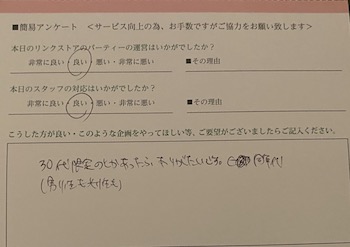 ■簡易アンケート <サービス向上の為、お手数ですがご協力をお願い致します>
本日のリンクストアのパーティーの運営はいかがでしたか?
非常に良い・良い・悪い・非常に悪い ■その理由
本日のスタッフの対応はいかがでしたか?
非常に良い・良い・悪い・非常に悪い ■その理由
こうした方が良い・このような企画をやってほしい等、ご要望がございましたらご記入ください。
30代限定のとかあったら ありがたいです。
(男性も女性も)